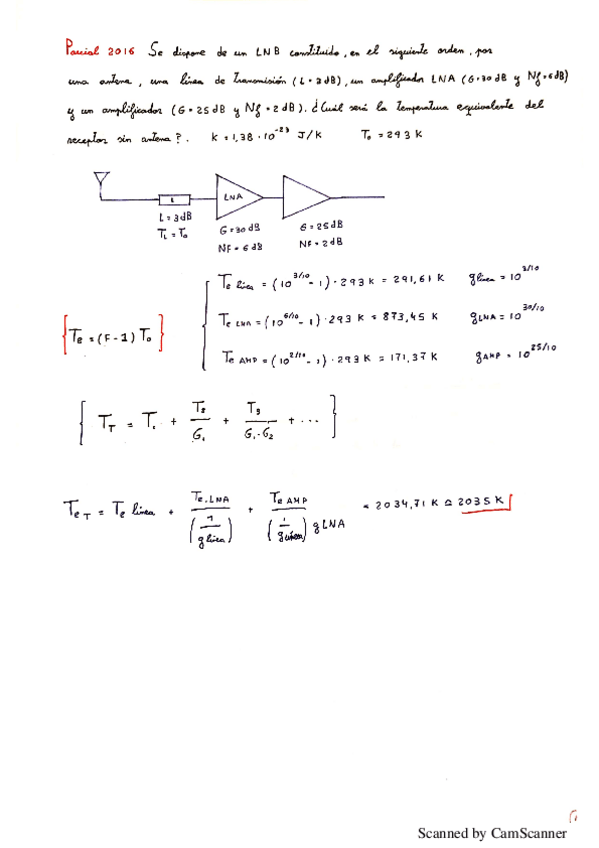 Parcial 2016 Se dispone de un LNB constituido, en el siguiente orden, por
una antena, una línea de transmisión (L = 3 dB), un amplificador LNA (G = 30 dB y Nf = 6 dB)
y un amplificador (G = 25 dB y Nf = 2 dB). ¿Cuál será la temperatura equivalente del
receptor sin antena?. k = 1,38 · 10^-23 J/K T₀ = 293 K
L LNA
L = 3 dB
T_L = T₀
G = 30 dB
NF = 6 dB
G = 25 dB
NF = 2 dB
{Te = (F - 1) T₀}
Te línea = (10^3/10 - 1) · 293 K = 291,61 K g línea = 10^3/10
Te LNA = (10^6/10 - 1) · 293 K = 873,45 K g LNA = 10^30/10
Te AMP = (10^2/10 - 1) · 293 K = 171,37 K g AMP = 10^25/10
{T_T = T₁ + T₂/G₁ + T₃/(G₁·G₂) + ···}
Te T = Te línea + Te,LNA/(1/g línea) + Te AMP/((1/g línea) g LNA) = 2034,71 K ≃ 2035 K
Scanned by CamScanner